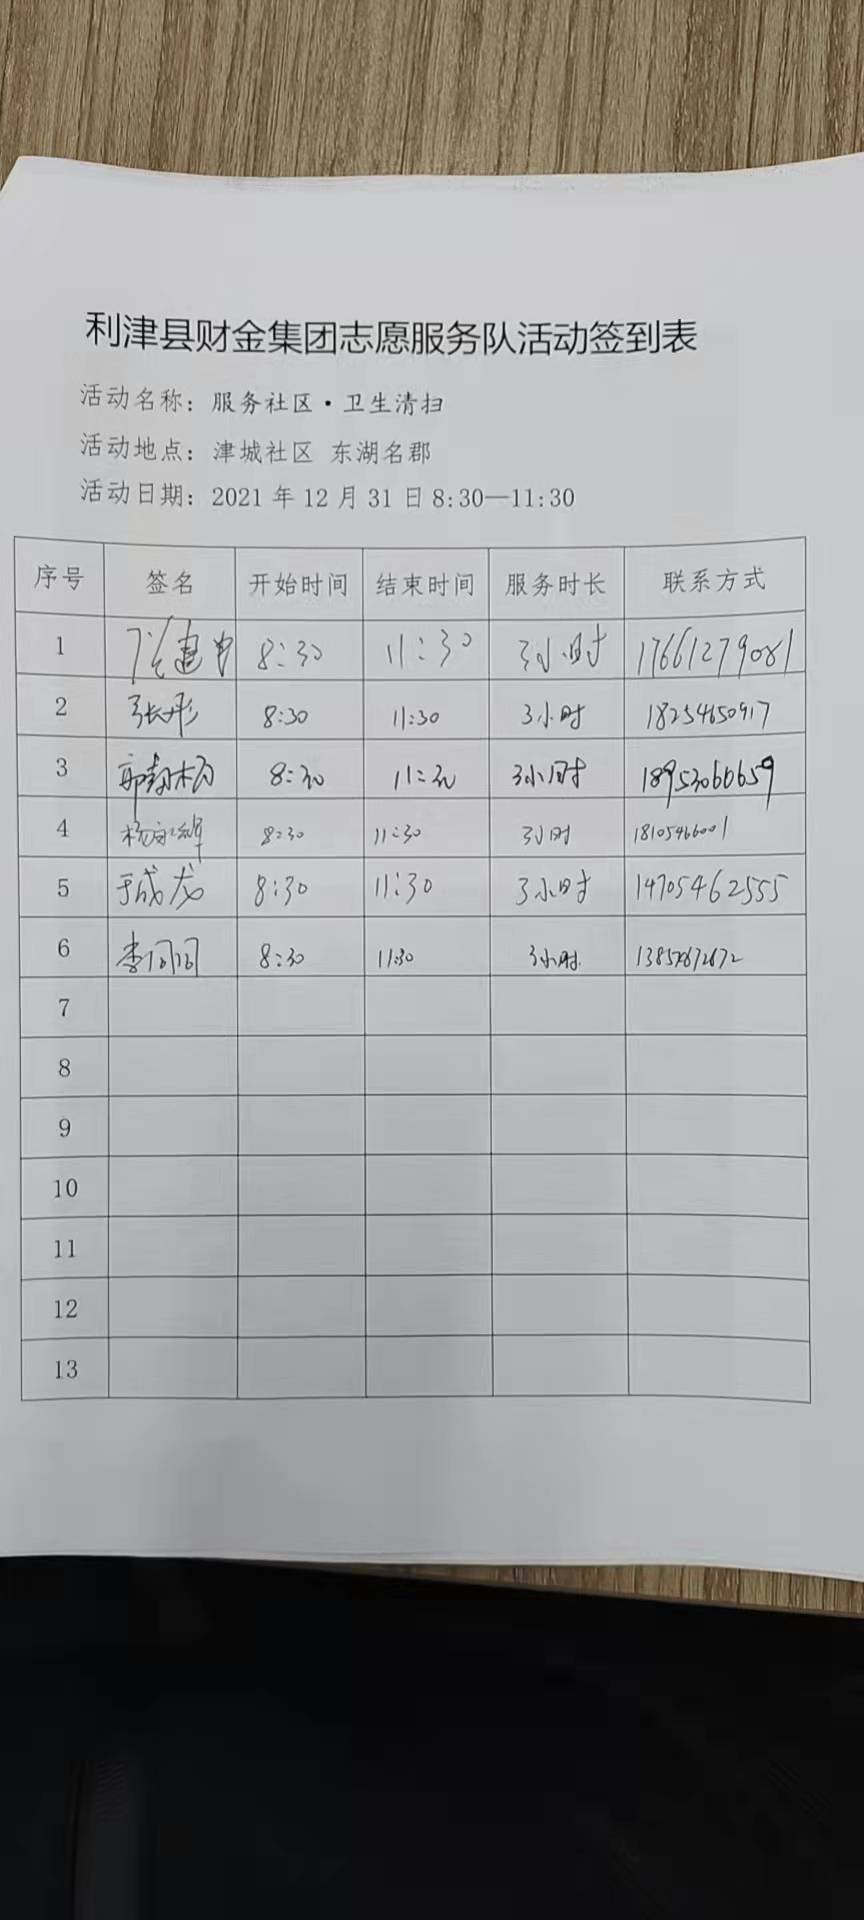 利津县财金集团志愿服务队活动签到表
活动名称：服务社区·卫生清扫
活动地点：津城社区 东湖名郡
活动日期：2021 年 12 月 31 日 8:30—11:30
序号 签名 开始时间 结束时间 服务时长 联系方式
1 8:30 11:30 3小时 17661279081
2 张彤 8:30 11:30 3小时 18254650917
3 8:30 11:30 3小时 18953060659
4 8:30 11:30 3小时 18105466001
5 于成龙 8:30 11:30 3小时 14705462555
6 李同同 8:30 11:30 3小时
7
8
9
10
11
12
13